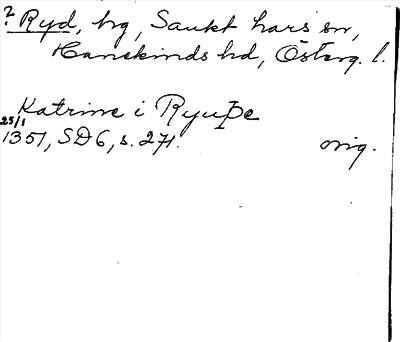 ? Ryd, hg, Sankt Lars sn,
Hanekinds hd, Österg. l.
Katrine i Ryuþe
25/1
1351, SD 6, s. 271. orig.